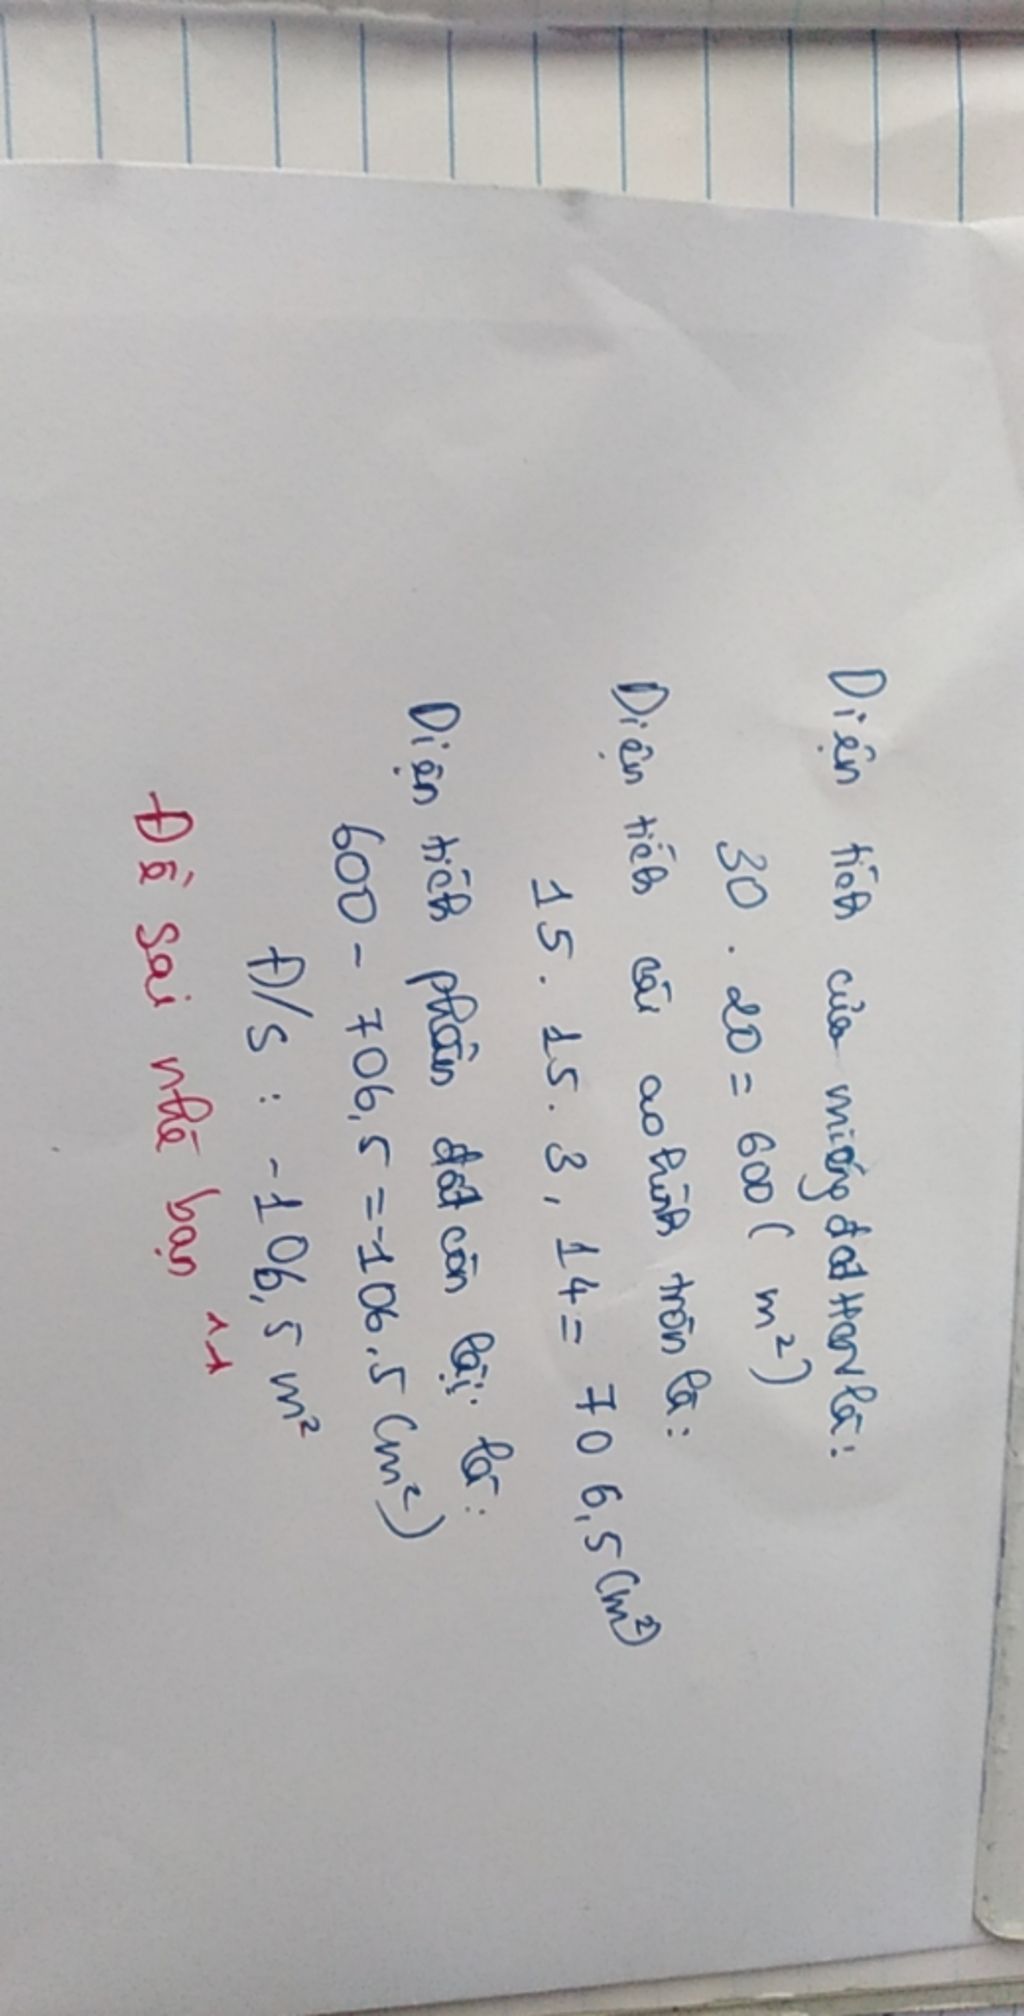 Diện tích của miếng đất HCN là:
30 . 20 = 600 ( m²)
Diện tích cái ao hình tròn là:
15 . 15 . 3,14 = 706,5 (m²)
Diện tích phần đất còn lại là:
600 - 706,5 = -106.5 (m²)
Đ/S : -106,5 m²
Đề sai nhé bạn ^^